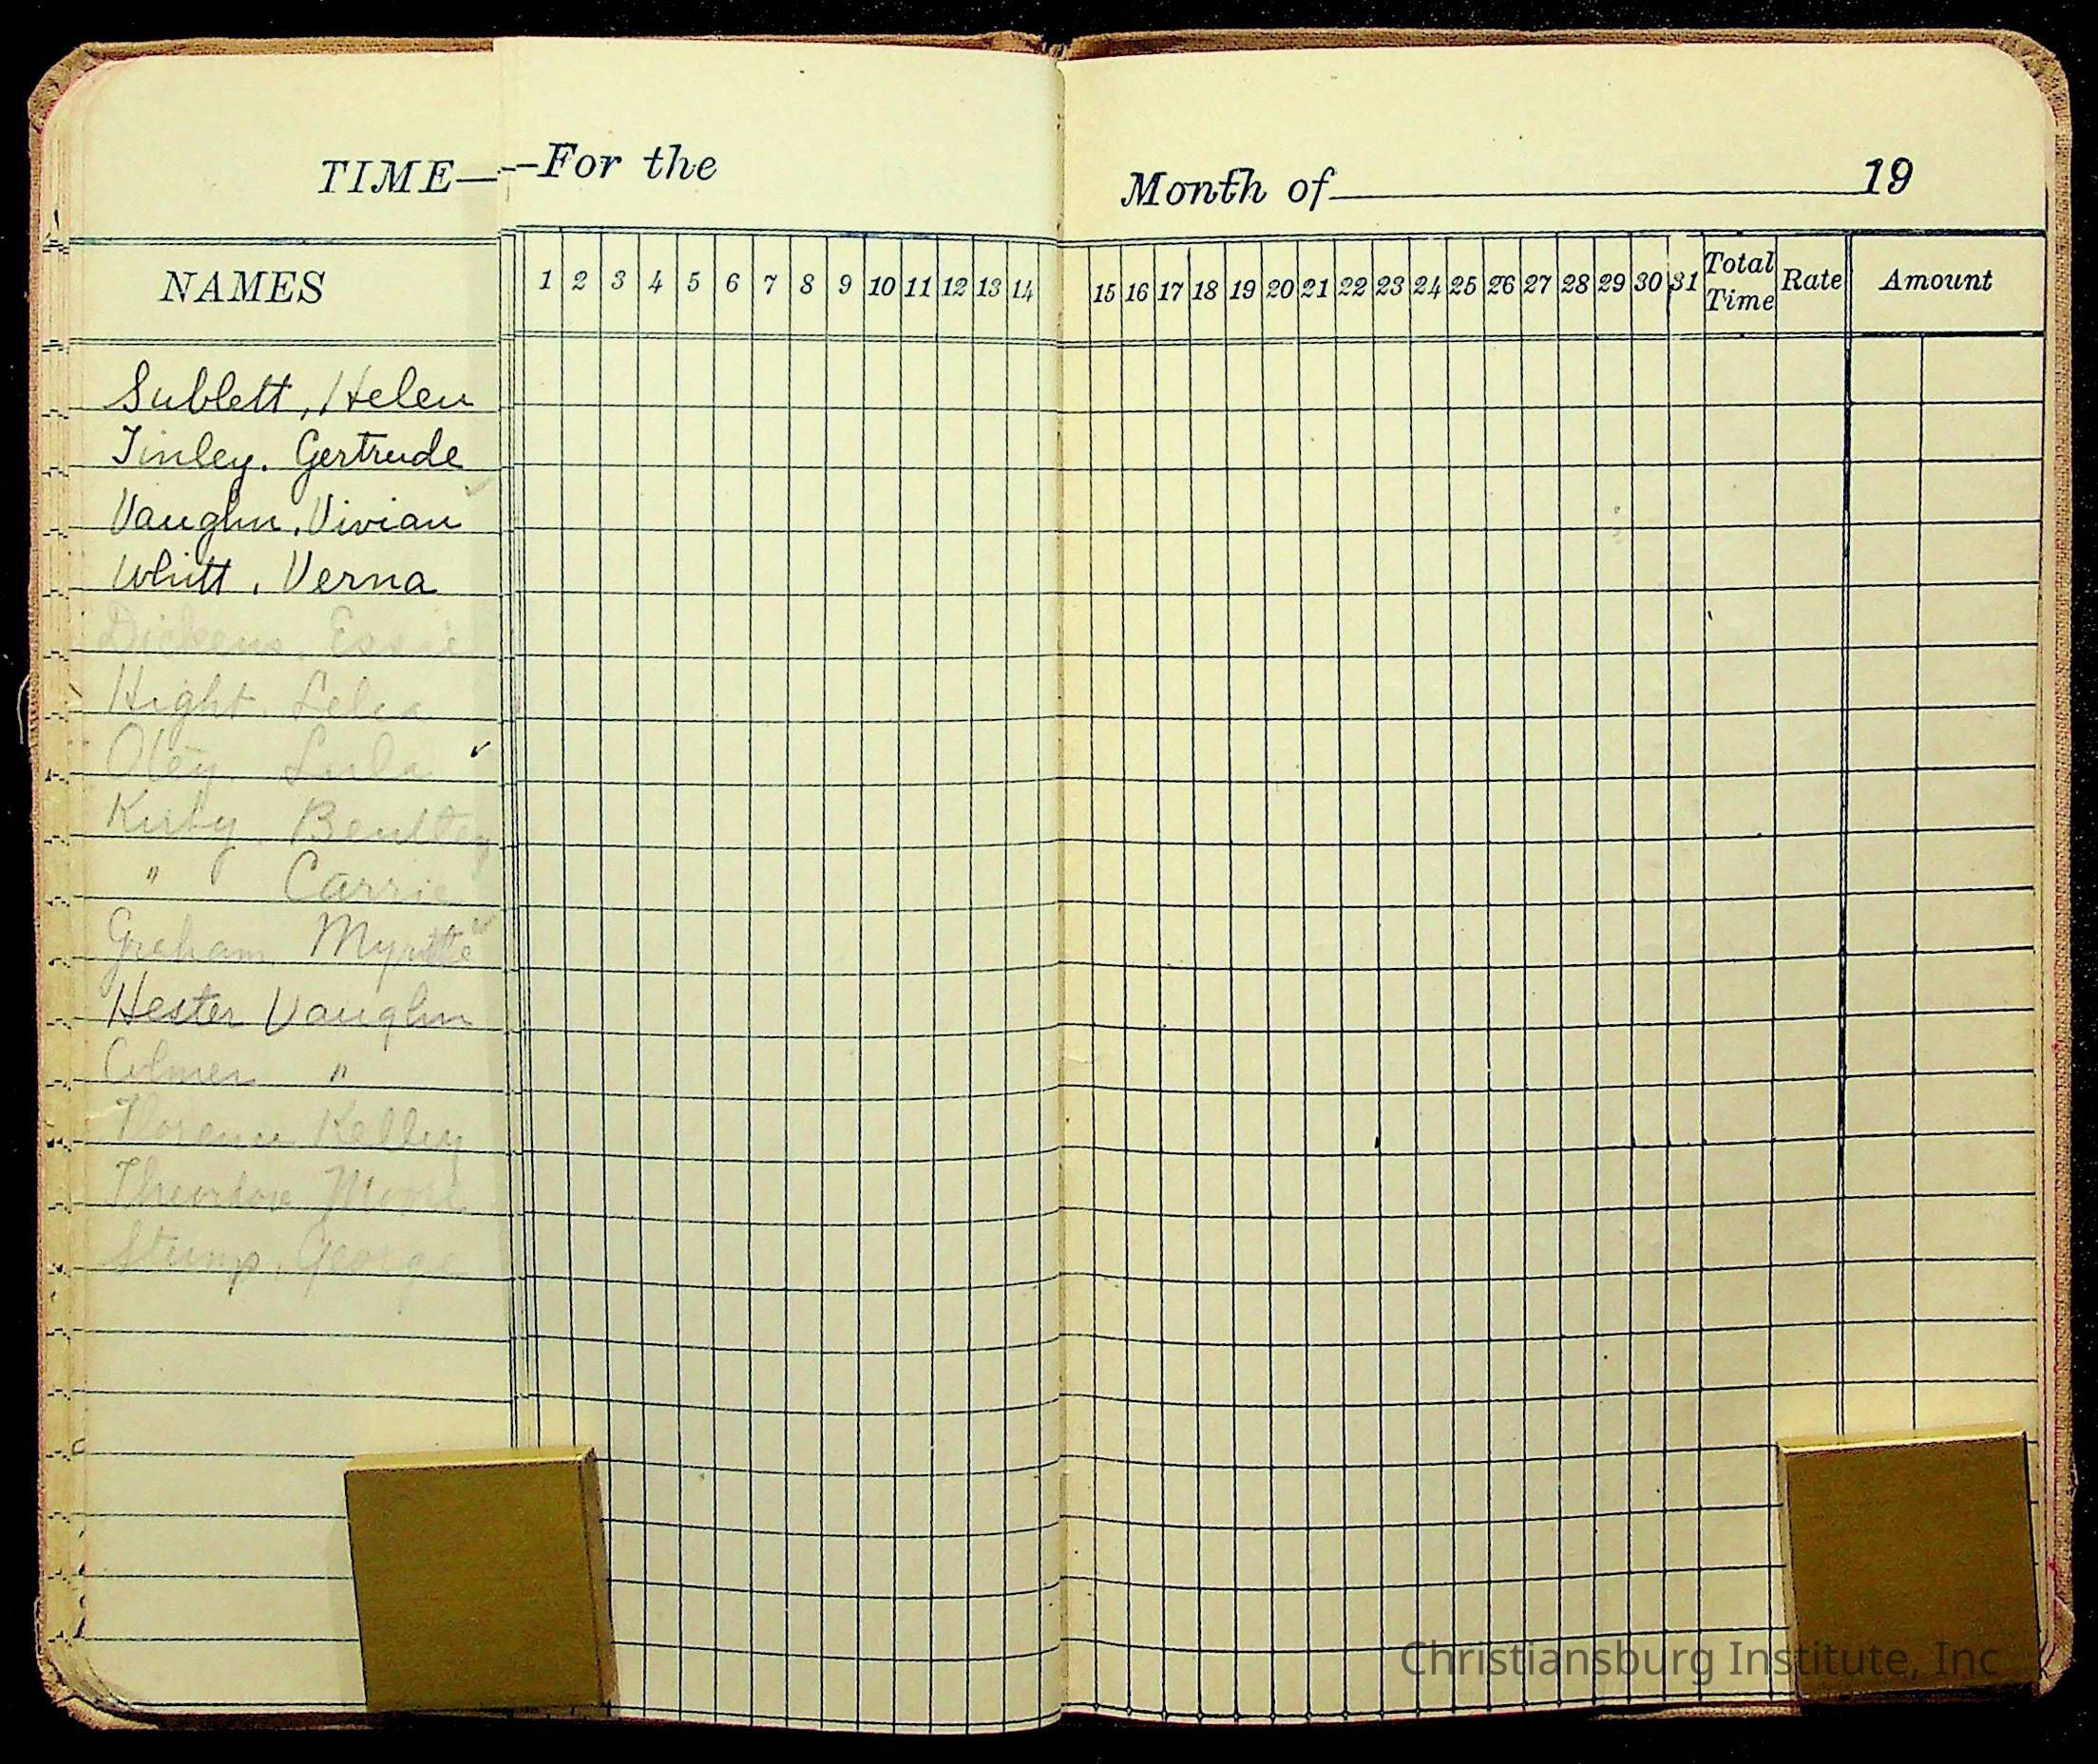 TIME— —For the Month of 19
NAMES 1 2 3 4 5 6 7 8 9 10 11 12 13 14 15 16 17 18 19 20 21 22 23 24 25 26 27 28 29 30 31 Total Time Rate Amount
Sublett, Helen
Tinley, Gertrude
Vaughn, Vivian
Whitt, Verna
Dickens, Essie
Hight, Lelia
Otey Lula ✓
Kirby Bentley
" Carrie
Graham Myrtle
Hester Vaughn
"
Florence Kelley
Theodore Moore
Stump, George
Christiansburg Institute, Inc